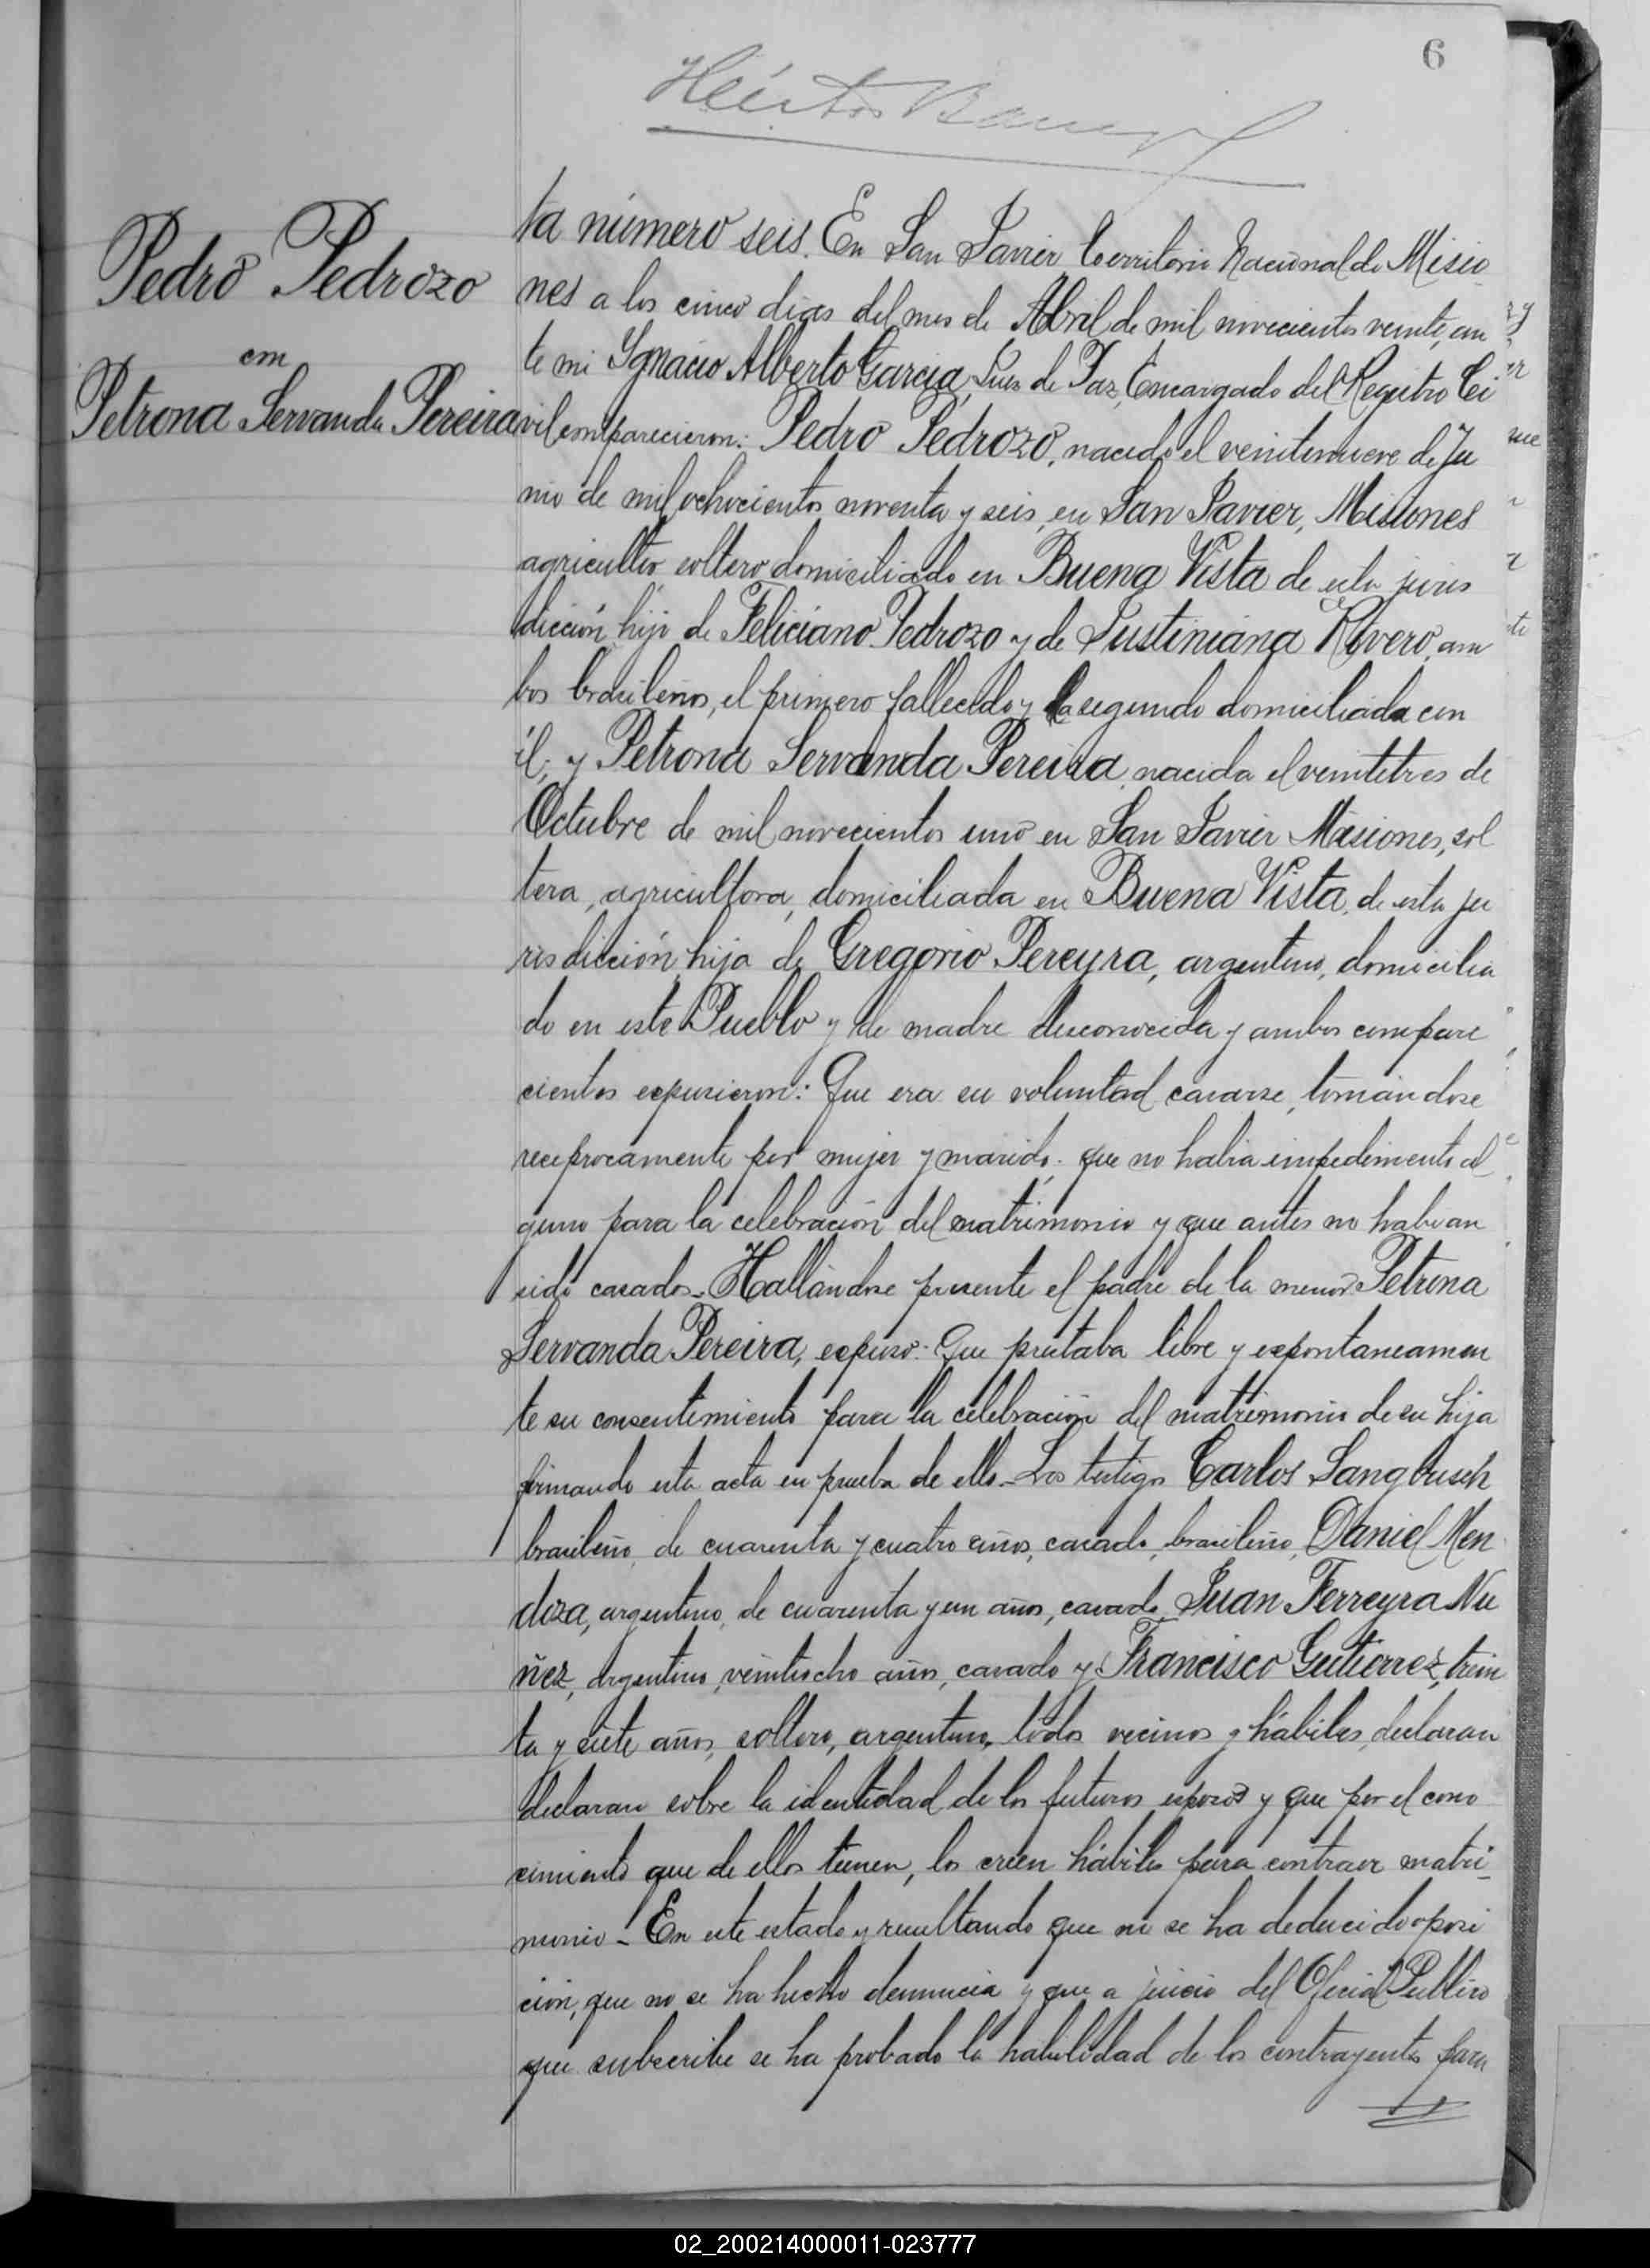 6
Héctor
Pedro Pedrozo
con
Petrona Servanda Pereira
ta número seis. En San Javier Territorio Nacional de Misio
nes a los cinco dias del mes de Abril de mil novecientos veinte, an
te mi Ygnacio Alberto Garcia, Juez de Paz, Encargado del Registro Ci
vil comparecieron: Pedro Pedrozo, nacido el veintenueve de Ju
nio de mil ochocientos noventa y seis, en San Javier, Misiones
agricultor, soltero, domiciliado en Buena Vista de esta juris
dicción, hijo de Feliciano Pedrozo y de Justiniana Rivero, am
bos brasileños, el primero fallecido y la segunda domiciliada con
él; y Petrona Servanda Pereira, nacida el veintetres de
Octubre de mil novecientos uno en San Javier Misiones, sol
tera, agricultora, domiciliada en Buena Vista, de esta ju
risdicción, hija de Gregorio Pereyra, argentino, domicilia
do en este Pueblo y de madre desconocida y ambos compare
cientes expusieron: Que era su voluntad casarse, tomándose
reciprocamente por mujer y marido; que no habia impedimento al
guno para la celebración del matrimonio y que antes no habian
sido casados. Hallándose presente el padre de la menor Petrona
Servanda Pereira, expuso: Que prestaba libre y expontaneamen
te su consentimiento para la celebración del matrimonio de su hija
firmando esta acta en prueba de ello. Los testigos Carlos Sangbusch
brasileño, de cuarenta y cuatro años, casado, brasileño, Daniel Men
doza, argentino, de cuarenta y un años, casado, Juan Ferreyra Nu
ñez, argentino, veintiocho años, casado y Francisco Gutierrez, trein
ta y siete años, soltero, argentino, todos vecinos y hábiles, declaran
declaran sobre la identidad de los futuros esposos y que por el cono
cimiento que de ellos tienen, los creen hábiles para contraer matri_
monio. En este estado y resultando que no se ha deducido oposi
cion, que no se ha hecho denuncia y que a juicio del Oficial Publico
que subscribe se ha probado la habilidad de los contrayentes para
02_200214000011-023777